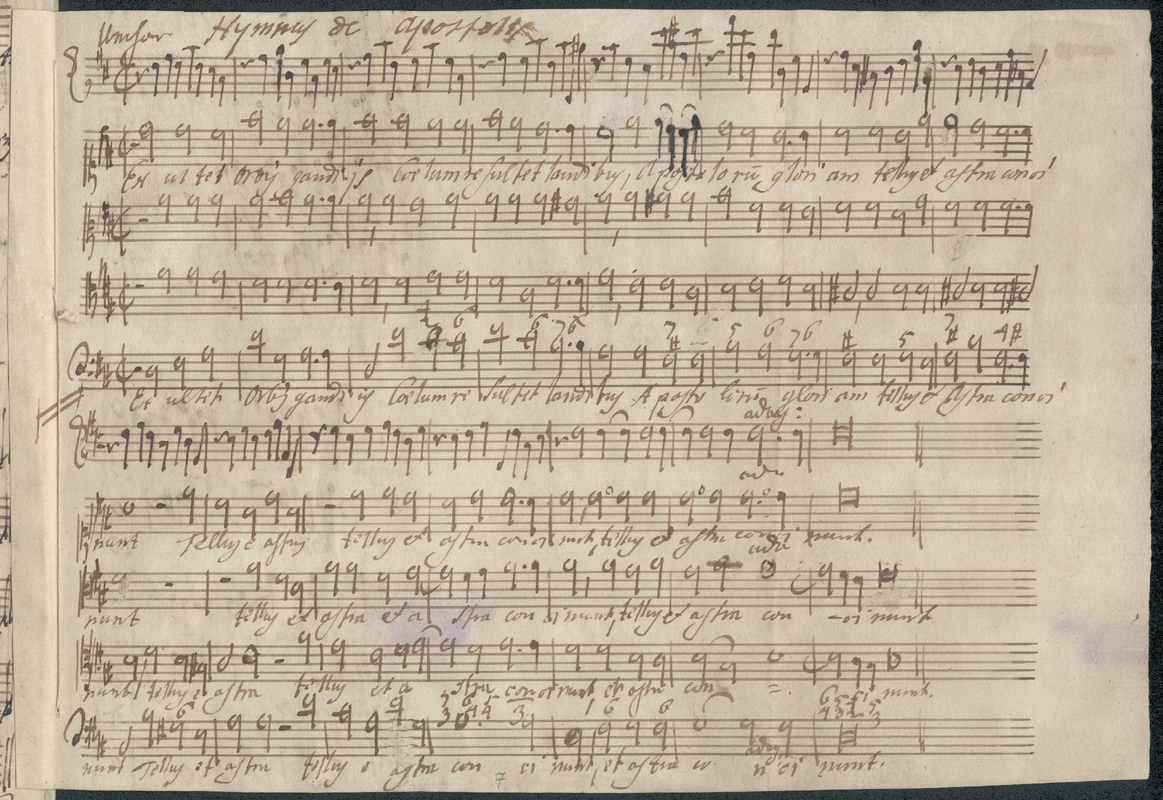 Hymnus de Apostolis
Ex ul tet Orbis gaudijs Cœlum resultet laudibus, Apostolorũ glori am tellus et astra conci
7 6 7 6 7 5 6 7 6 # 5 7 # 4 #
Ex ultet Orbis gaudijs Cœlum re sultet laudibus Aposto lorũ glori am tellus et Astra conci
adag:
nunt Tellus et astra tellus et astra concinunt, tellus et astra conci nunt.
nunt tellus et astra et a stra con cinunt, tellus et astra con ci nunt
nunt tellus et astra tellus et a stra concinunt, et astra con nunt.
nunt Tellus et astra tellus e astra con ci nunt, et astra co n ci nunt.
7